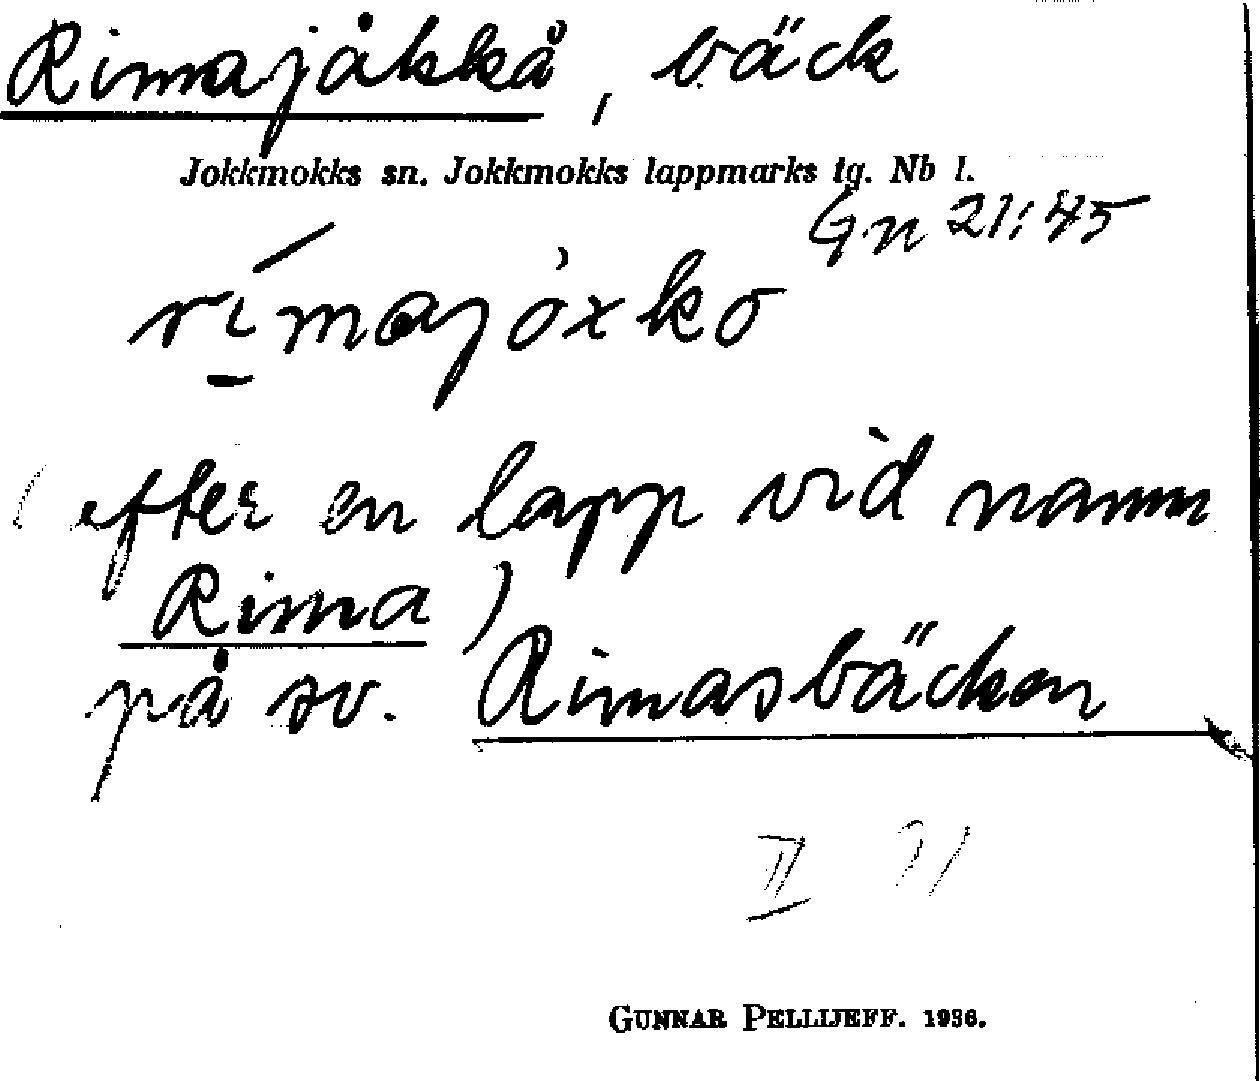 Rimajåkkå, bäck
Jokkmokks sn. Jokkmokks lappmarks tg. Nb l.
Gn 21:45
rímajòxko
(efter en lapp vid namn
Rima)
på sv. Rimasbäcken
II 71
GUNNAR PELLIJEFF. 1936.